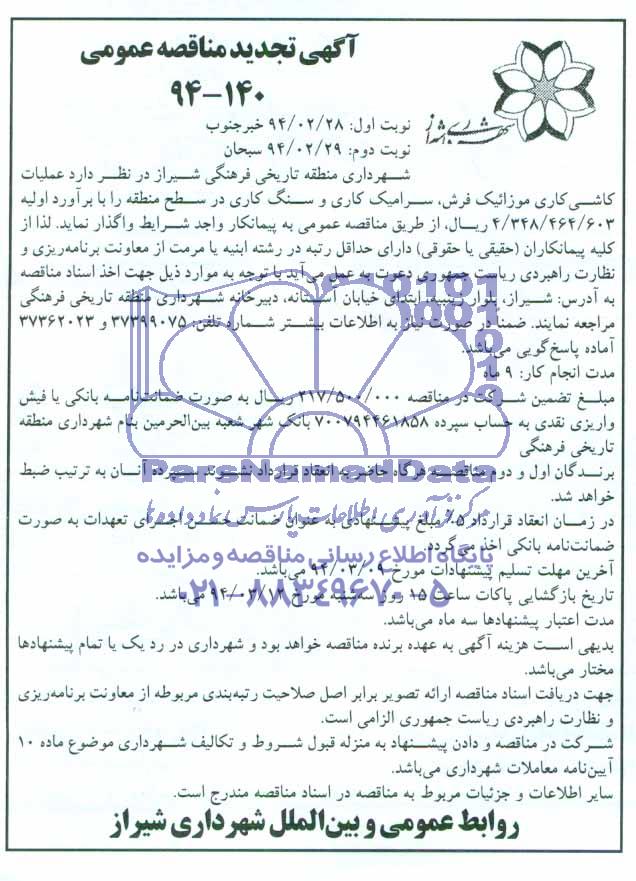 آگهی تجدید مناقصه عمومی
۹۴-۱۴۰
شهرداری شیراز
نوبت اول: ۹۴/۰۲/۲۸ خبرجنوب
نوبت دوم: ۹۴/۰۲/۲۹ سبحان
شهرداری منطقه تاریخی فرهنگی شیراز در نظر دارد عملیات
کاشی‌کاری موزائیک فرش، سرامیک کاری و سنگ کاری در سطح منطقه را با برآورد اولیه
۴/۳۴۸/۴۶۴/۶۰۳ ریال، از طریق مناقصه عمومی به پیمانکار واجد شرایط واگذار نماید. لذا از
کلیه پیمانکاران (حقیقی یا حقوقی) دارای حداقل رتبه در رشته ابنیه یا مرمت از معاونت برنامه‌ریزی و
نظارت راهبردی ریاست جمهوری دعوت به عمل می‌آید با توجه به موارد ذیل جهت اخذ اسناد مناقصه
به آدرس: شیراز، بلوار زینبیه، ابتدای خیابان آستانه، دبیرخانه شهرداری منطقه تاریخی فرهنگی
مراجعه نمایند. ضمناً در صورت نیاز به اطلاعات بیشتر شماره تلفن: ۳۷۳۹۹۰۷۵ و ۳۷۳۶۲۰۲۳
آماده پاسخ‌گویی می‌باشد.
مدت انجام کار: ۹ ماه
مبلغ تضمین شرکت در مناقصه ۲۱۷/۵۰۰/۰۰۰ ریال به صورت ضمانت‌نامه بانکی یا فیش
واریزی نقدی به حساب سپرده ۷۰۰۷۹۴۴۶۱۸۵۸ بانک شهر شعبه بین‌الحرمین بنام شهرداری منطقه
تاریخی فرهنگی
برندگان اول و دوم مناقصه هرگاه حاضر به انعقاد قرارداد نشوند سپرده آنان به ترتیب ضبط
خواهد شد.
در زمان انعقاد قرارداد ۵٪ مبلغ پیشنهادی به عنوان ضمانت حسن اجرای تعهدات به صورت
ضمانت‌نامه بانکی اخذ می‌گردد.
آخرین مهلت تسلیم پیشنهادات مورخ ۹۴/۰۳/۰۹ می‌باشد.
تاریخ بازگشایی پاکات ساعت ۱۵ روز سه‌شنبه مورخ ۹۴/۰۳/۱۲ می‌باشد.
مدت اعتبار پیشنهادها سه ماه می‌باشد.
بدیهی است هزینه آگهی به عهده برنده مناقصه خواهد بود و شهرداری در رد یک یا تمام پیشنهادها
مختار می‌باشد.
جهت دریافت اسناد مناقصه ارائه تصویر برابر اصل صلاحیت رتبه‌بندی مربوطه از معاونت برنامه‌ریزی
و نظارت راهبردی ریاست جمهوری الزامی است.
شرکت در مناقصه و دادن پیشنهاد به منزله قبول شروط و تکالیف شهرداری موضوع ماده ۱۰
آیین‌نامه معاملات شهرداری می‌باشد.
سایر اطلاعات و جزئیات مربوط به مناقصه در اسناد مناقصه مندرج است.
روابط عمومی و بین‌الملل شهرداری شیراز
ParsNamadData
مرکز فرآوری اطلاعات پارس نماد داده‌ها
پایگاه اطلاع رسانی مناقصه و مزایده
۰۲۱-۸۸۳۴۹۶۷۰-۵